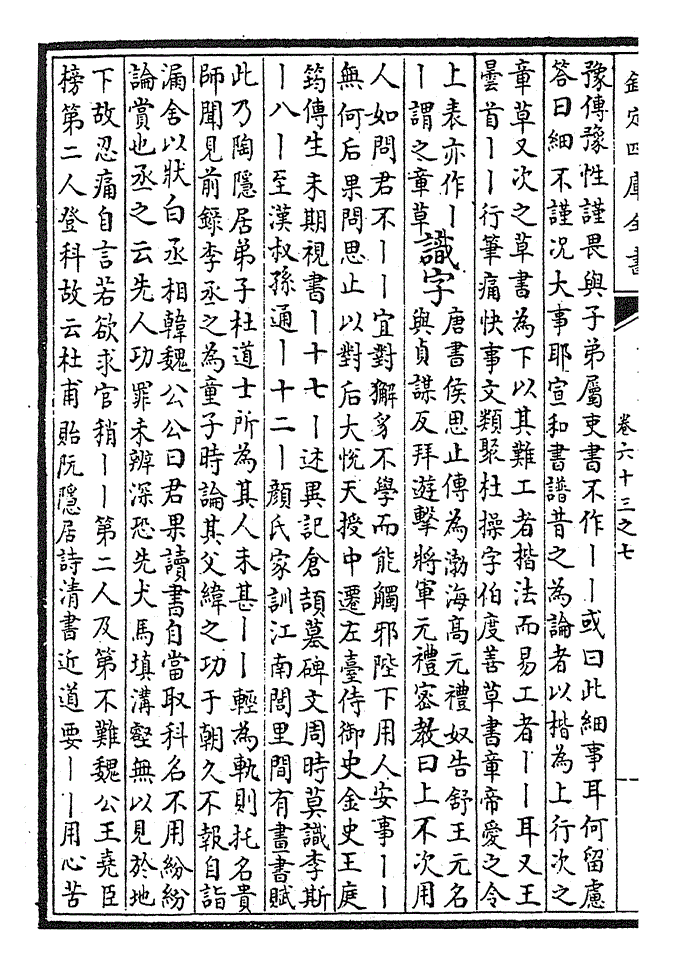 欽定四庫全書
卷六十三之七
豫傳豫性謹畏與子弟屬吏書不作丨丨或曰此細事耳何留慮
答曰細不謹况大事耶宣和書譜昔之為論者以楷為上行次之
章草又次之草書為下以其難工者楷法而易工者丨丨耳又王
曇首丨丨行筆痛快事文類聚杜操字伯度善草書章帝愛之令
上表亦作丨
丨謂之章草
識字
唐書侯思止傳為渤海高元禮奴告舒王元名
與貞謀反拜遊擊將軍元禮密教曰上不次用
人如問君不丨丨宜對獬豸不學而能觸邪陛下用人安事丨丨
無何后果問思止以對后大悅天授中遷左臺侍御史金史王庭
筠傳生未期視書丨十七丨述異記倉頡墓碑文周時莫識李斯
丨八丨至漢叔孫通丨十二丨顏氏家訓江南閭里間有畫書賦
此乃陶隱居弟子杜道士所為其人未甚丨丨輕為軌則托名貴
師聞見前錄李丞之為童子時論其父緯之功于朝久不報自詣
漏舍以狀白丞相韓魏公公曰君果讀書自當取科名不用紛紛
論賞也丞之云先人功罪未辨深恐先犬馬填溝壑無以見於地
下故忍痛自言若欲求官稍丨丨第二人及第不難魏公王堯臣
榜第二人登科故云杜甫貽阮隱居詩清書近道要丨丨用心苦